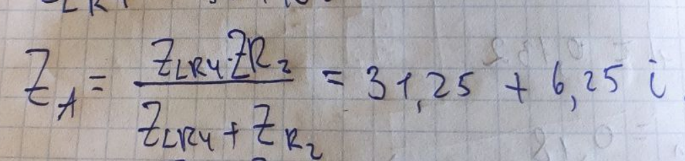 Z_A = \frac{Z_{LR4} \cdot Z_{R2}}{Z_{LR4} + Z_{R2}} = 31,25 + 6,25 i